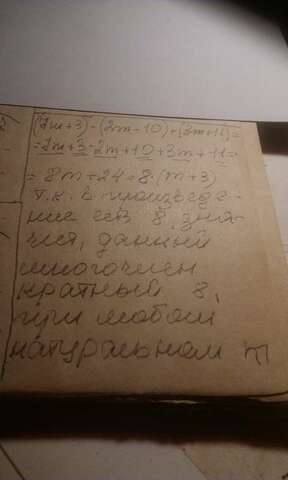 (7m+3)-(2m-10)+(3m+11)=
=7m+3-2m+10+3m+11=
=8m+24=8·(m+3)
т.к. в произведе-
ние ест 8, зна-
чит, данный
многочлен
кратный 8,
при любом
натуральном m